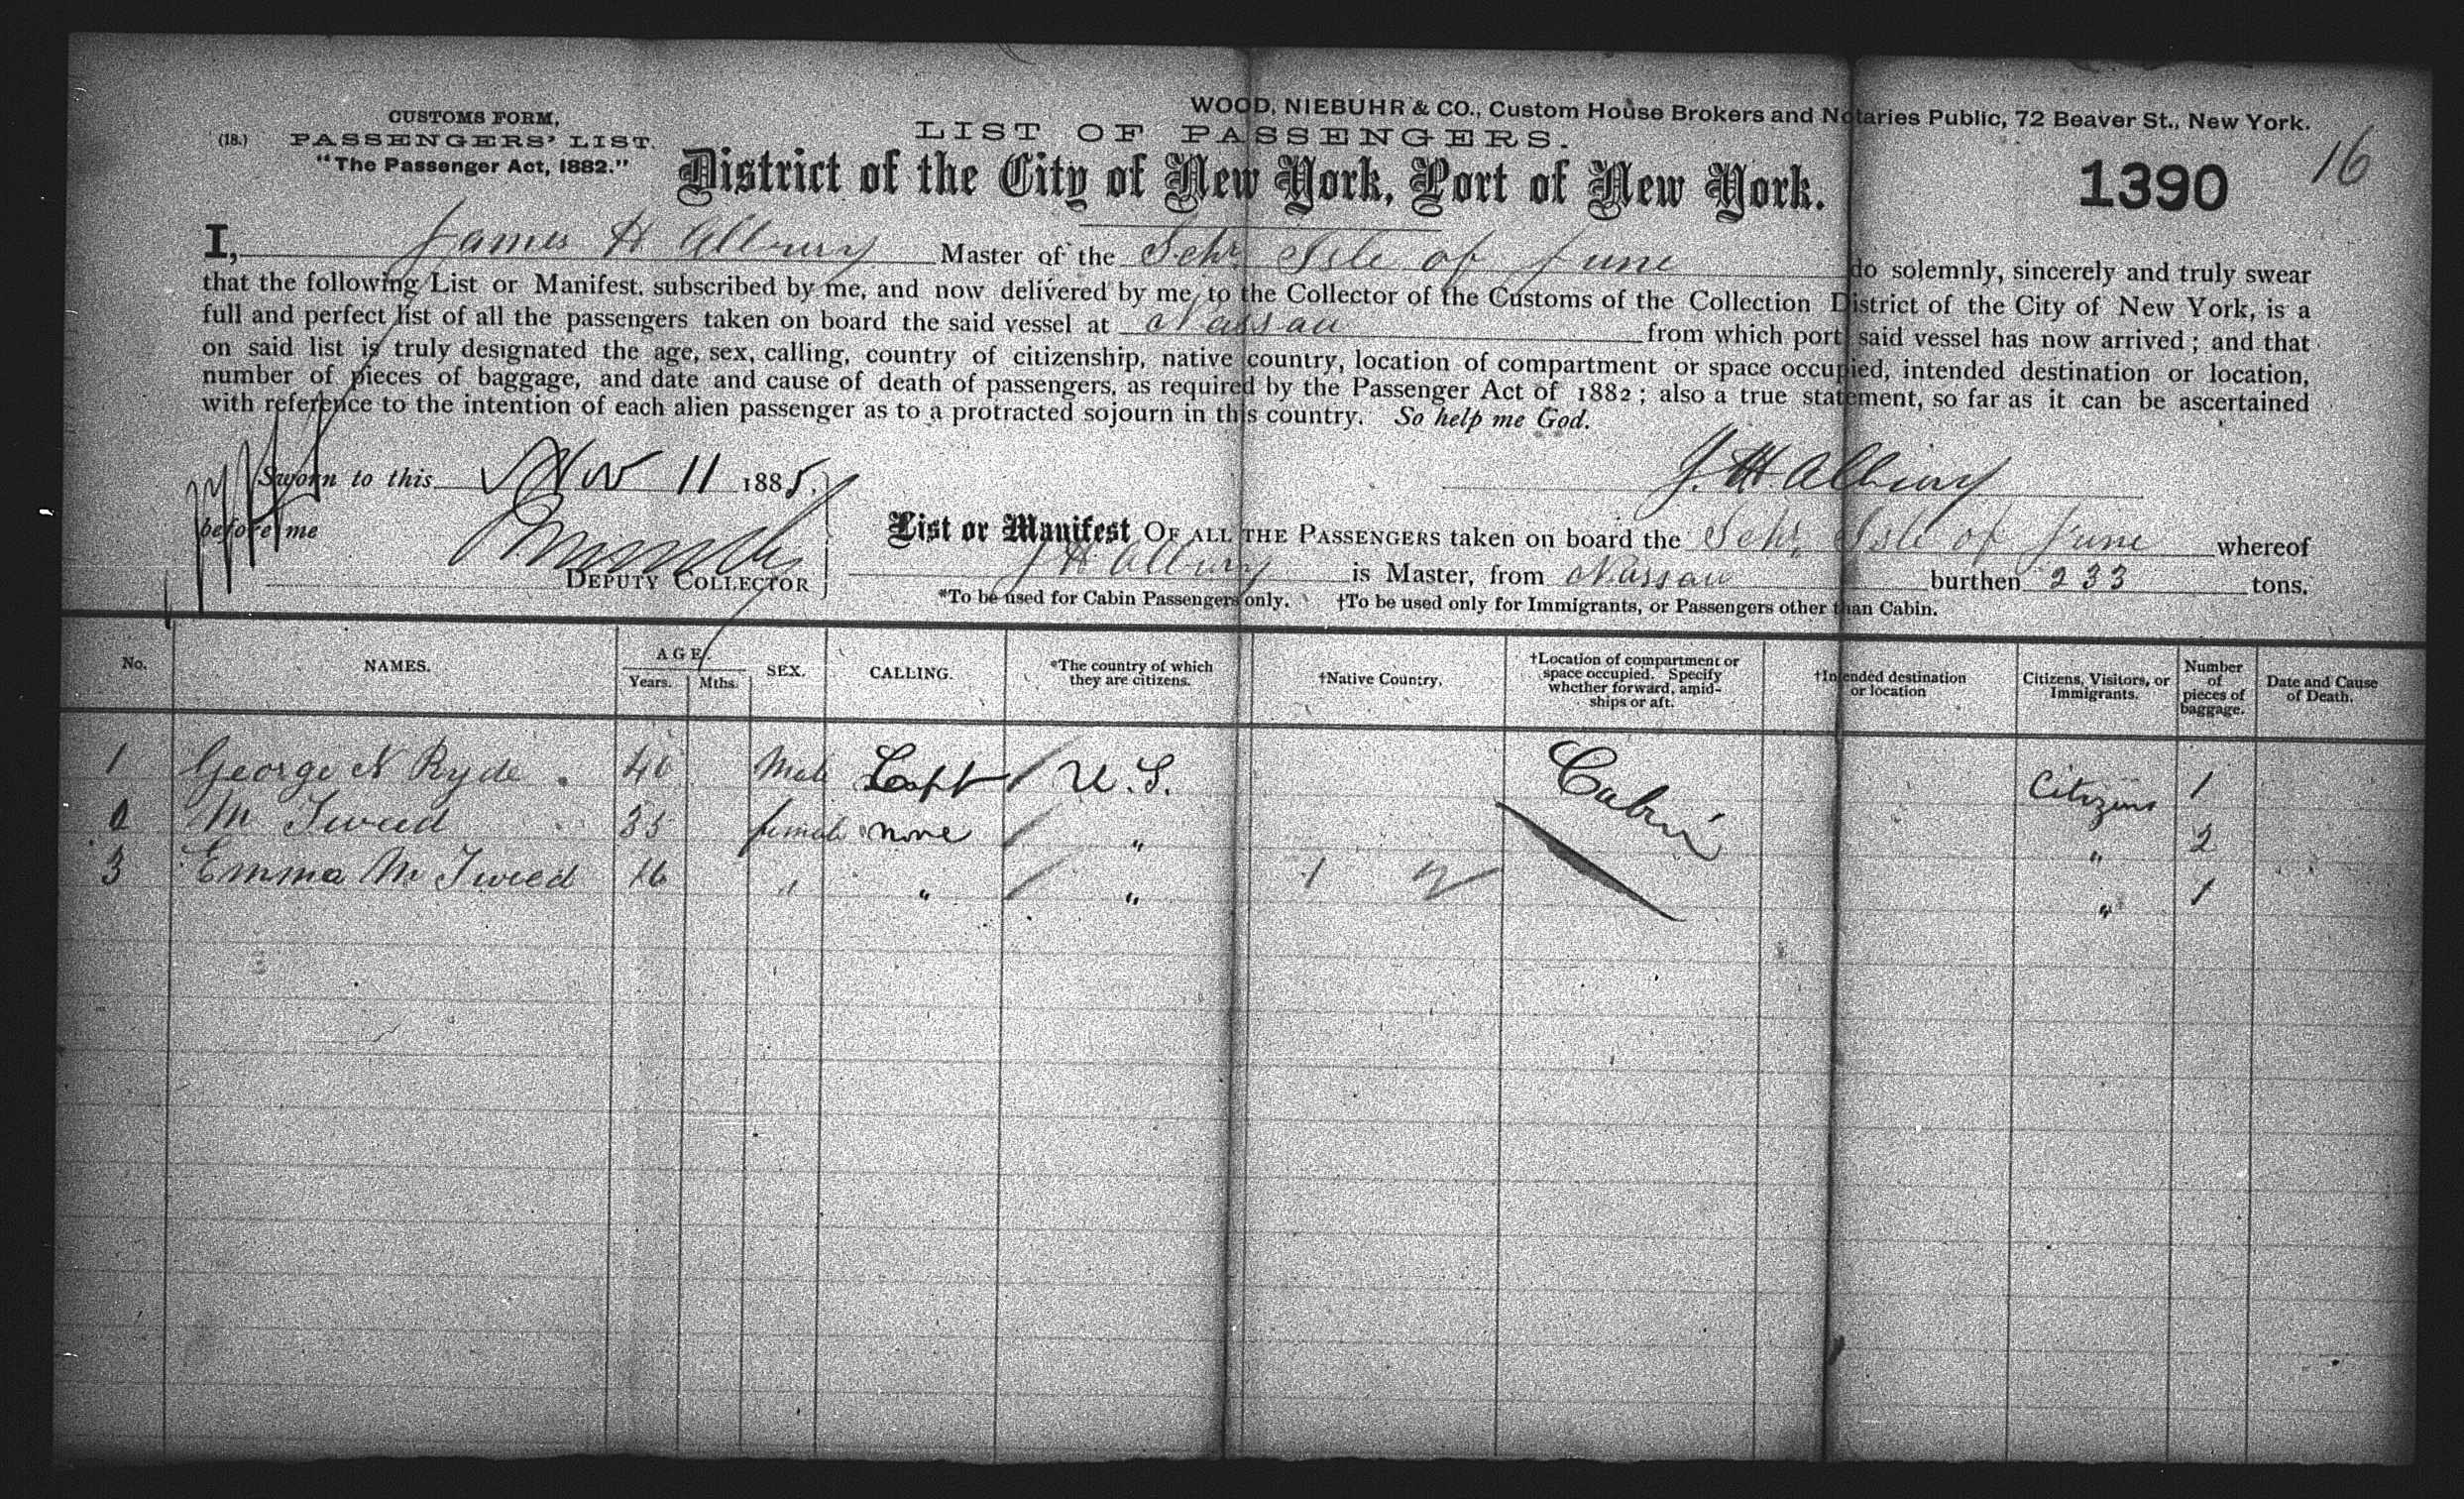 WOOD, NIEBUHR & CO., Custom House Brokers and Notaries Public, 72 Beaver St., New York.
CUSTOMS FORM,
(18.) PASSENGERS' LIST.
"The Passenger Act, 1882."
LIST OF PASSENGERS.
District of the City of New York, Port of New York.
1390 16
I, James H Albury Master of the Schr Isle of June do solemnly, sincerely and truly swear
that the following List or Manifest, subscribed by me, and now delivered by me to the Collector of the Customs of the Collection District of the City of New York, is a
full and perfect list of all the passengers taken on board the said vessel at Nassau from which port said vessel has now arrived; and that
on said list is truly designated the age, sex, calling, country of citizenship, native country, location of compartment or space occupied, intended destination or location,
number of pieces of baggage, and date and cause of death of passengers, as required by the Passenger Act of 1882; also a true statement, so far as it can be ascertained
with reference to the intention of each alien passenger as to a protracted sojourn in this country. So help me God.
Sworn to this Nov 11 1885, J. H Albury
before me
DEPUTY COLLECTOR
List or Manifest OF ALL THE PASSENGERS taken on board the Schr. Isle of June whereof
J H Albury is Master, from Nassau burthen 233 tons.
*To be used for Cabin Passengers only. †To be used only for Immigrants, or Passengers other than Cabin.
No. NAMES. AGE. Years. Mths. SEX. CALLING. *The country of which they are citizens. †Native Country. †Location of compartment or space occupied. Specify whether forward, amid-ships or aft. †Intended destination or location Citizens, Visitors, or Immigrants. Number of pieces of baggage. Date and Cause of Death.
1 George N Ryde 40 Male Capt U.S. Cabin Citizens 1
2 M Tweed 35 female none " " 2
3 Emma M Tweed 16 " " " " 1